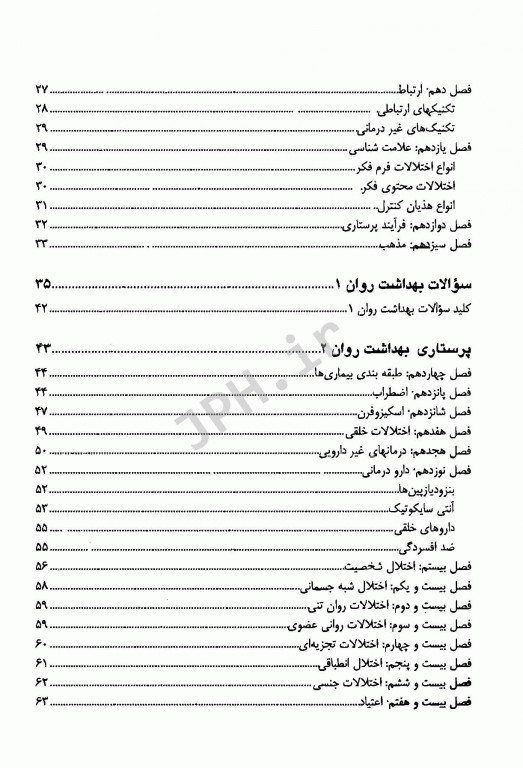 فصل دهم: ارتباط ۲۷
تکنیکهای ارتباطی ۲۸
تکنیک‌های غیر درمانی ۲۹
فصل یازدهم: علامت شناسی ۲۹
انواع اختلالات فرم فکر ۳۰
اختلالات محتوی فکر ۳۰
انواع هذیان کنترل ۳۱
فصل دوازدهم: فرآیند پرستاری ۳۲
فصل سیزدهم: مذهب ۳۳
سؤالات بهداشت روان ۱ ۳۵
کلید سؤالات بهداشت روان ۱ ۴۲
پرستاری بهداشت روان ۲ ۴۳
فصل چهاردهم: طبقه بندی بیماری‌ها ۴۴
فصل پانزدهم: اضطراب ۴۴
فصل شانزدهم: اسکیزوفرن ۴۷
فصل هفدهم: اختلالات خلقی ۴۹
فصل هجدهم: درمانهای غیر دارویی ۵۰
فصل نوزدهم: دارو درمانی ۵۲
بنزودیازپین‌ها ۵۲
آنتی سایکوتیک ۵۳
داروهای خلقی ۵۵
ضد افسردگی ۵۵
فصل بیستم: اختلال شخصیت ۵۶
فصل بیست و یکم: اختلال شبه جسمانی ۵۸
فصل بیست و دوم: اختلالات روان تنی ۵۹
فصل بیست و سوم: اختلالات روانی عضوی ۵۹
فصل بیست و چهارم: اختلالات تجزیه‌ای ۶۰
فصل بیست و پنجم: اختلال انطباقی ۶۱
فصل بیست و ششم: اختلالات جنسی ۶۲
فصل بیست و هفتم: اعتیاد ۶۳
JPH.ir